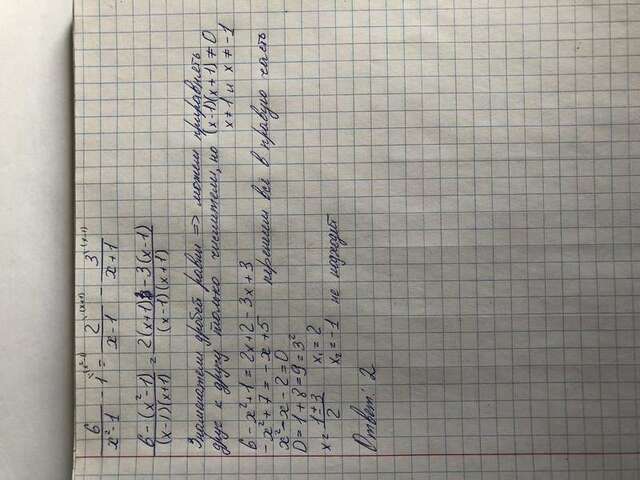 6/(x²-1) - 1^(x²-1) = 2^(x+1)/(x-1) - 3^(x-1)/(x+1)
(6-(x²-1))/((x-1)(x+1)) = (2(x+1) - 3(x-1))/((x-1)(x+1))
Знаменатели дробей равны => можем приравнять
друг к другу только числители, но (x-1)(x+1)≠0
x≠1 и x≠-1
6-x²+1=2x+2-3x+3
-x²+7=-x+5 перенесем всё в правую часть
x²-x-2=0
D=1+8=9=3²
x=(1±3)/2 x₁=2
x₂=-1 не подходит
Ответ: 2